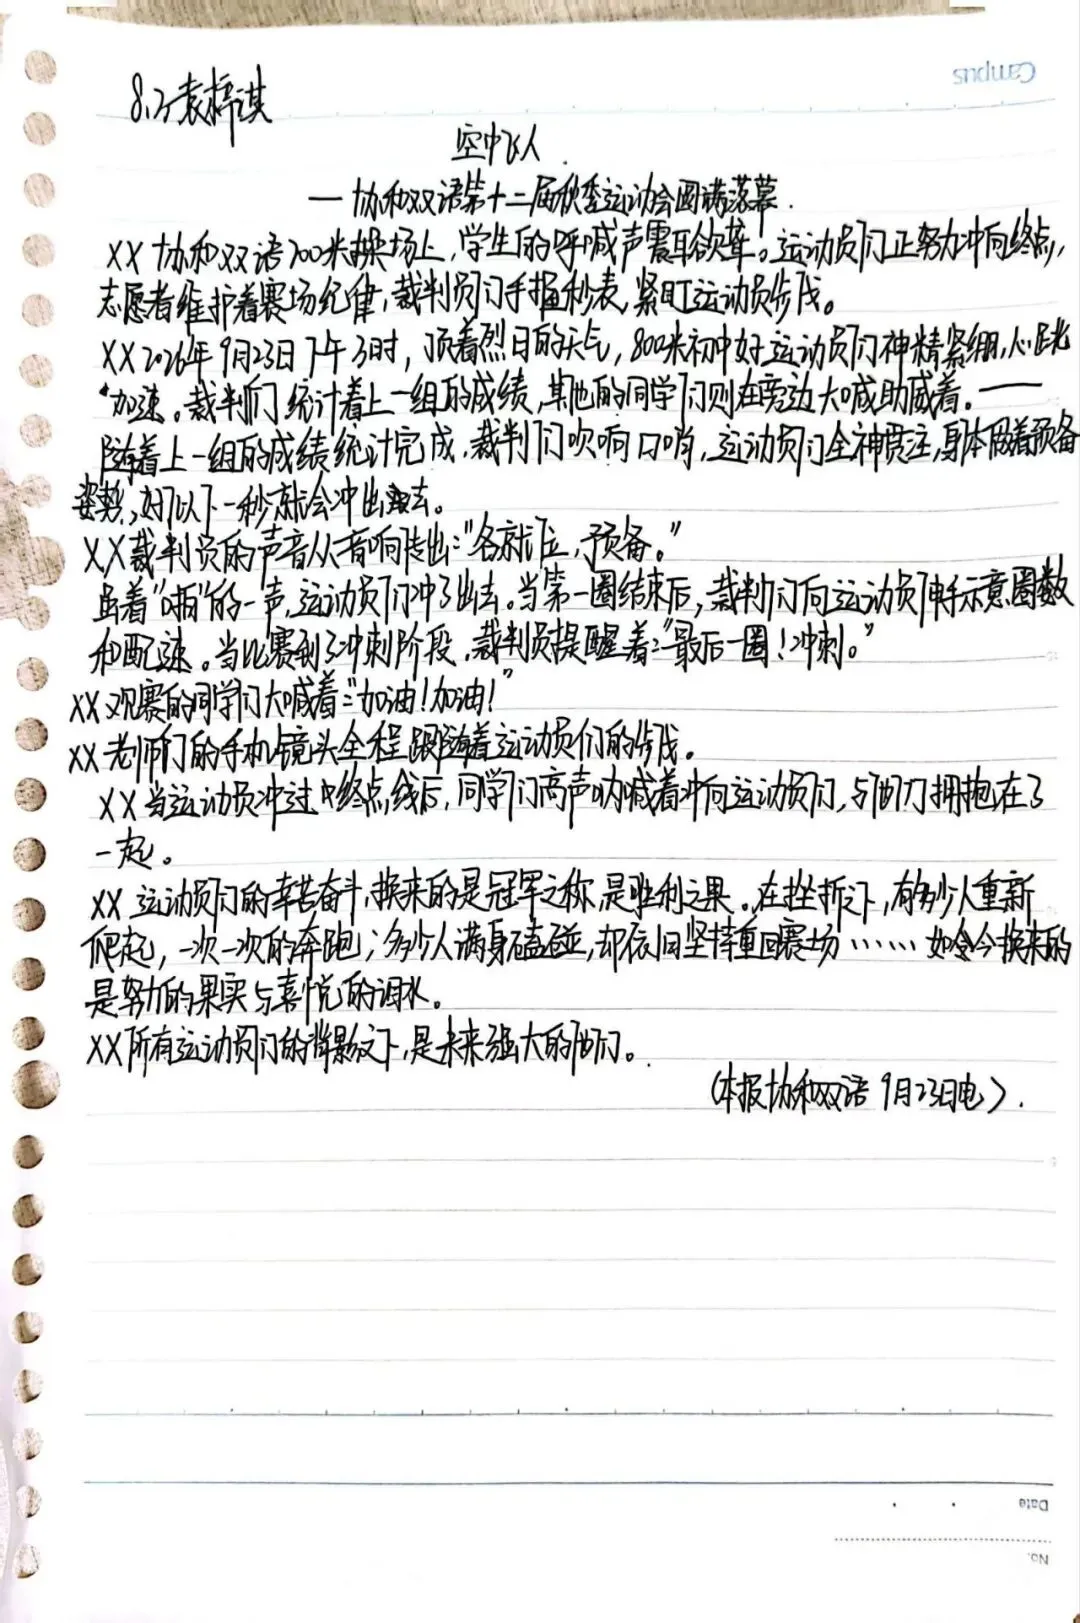 Campus
8.3袁梓淇
空中飞人
—协和双语第十二届秋季运动会圆满落幕.
XX 协和双语200米操场上,学生们的呼喊声震耳欲聋。运动员们正努力冲向终点,
志愿者维护着赛场纪律,裁判员们手握秒表,紧盯运动员步伐。
XX2026年9月23日下午3时,顶着烈日的天气,800米初中女子运动员们神精紧绷,心跳
加速。裁判们统计着上一组的成绩,其他的同学们则在旁边大喊助威着。——
随着上一组的成绩统计完成,裁判们吹响口哨,运动员们全神贯注,身体做着预备
姿势,好似下一秒就会冲出去。
XX裁判员的声音从音响传出:"各就位,预备。"
随着"啪"的一声,运动员们冲了出去。当第一圈结束后,裁判们向运动员伸手示意圈数
和配速。当比赛到了冲刺阶段,裁判员提醒着:"最后一圈!冲刺。"
XX观赛的同学们大喊着:"加油!加油!"
XX老师们的手机镜头全程跟随着运动员们的步伐。
XX当运动员冲过终点线后,同学们高声呐喊着冲向运动员们,与他们拥抱在了
一起。
XX 运动员们的辛苦奋斗,换来的是冠军之称,是胜利之果。在挫折之下,有多少人重新
爬起,一次一次的奔跑;多少人满身磕碰,却依旧坚持重回赛场……如今换来的
是努力的果实与喜悦的泪水。
XX所有运动员们的背影之下,是未来强大的他们。
(本报协和双语 9月23日电).
Date
No.